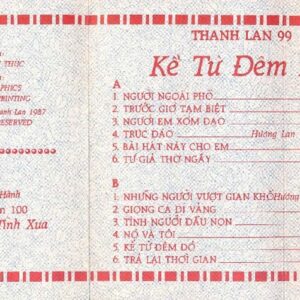 THANH LAN 99
Kể Từ Đêm
THỨC
GRAPHICS
PRINTING
Lan 1987
RESERVED
A
1. NGƯỜI NGOÀI PHỐ
2. TRƯỚC GIỜ TẠM BIỆT
3. NGƯỜI EM XÓM ĐẠO
4. TRÚC ĐÀO Hương Lan
5. BÀI HÁT NÀY CHO EM
6. TỪ GIÃ THƠ NGÂY
Hành
100
Tình Xưa
B
1. NHỮNG NGƯỜI VƯỢT GIAN KHỔ Hương Lan
2. GIỌNG CA DĨ VÃNG
3. TÌNH NGƯỜI ĐẦU NON
4. NÓ VÀ TÔI
5. KỂ TỪ ĐÊM ĐÓ
6. TRẢ LẠI THỜI GIAN